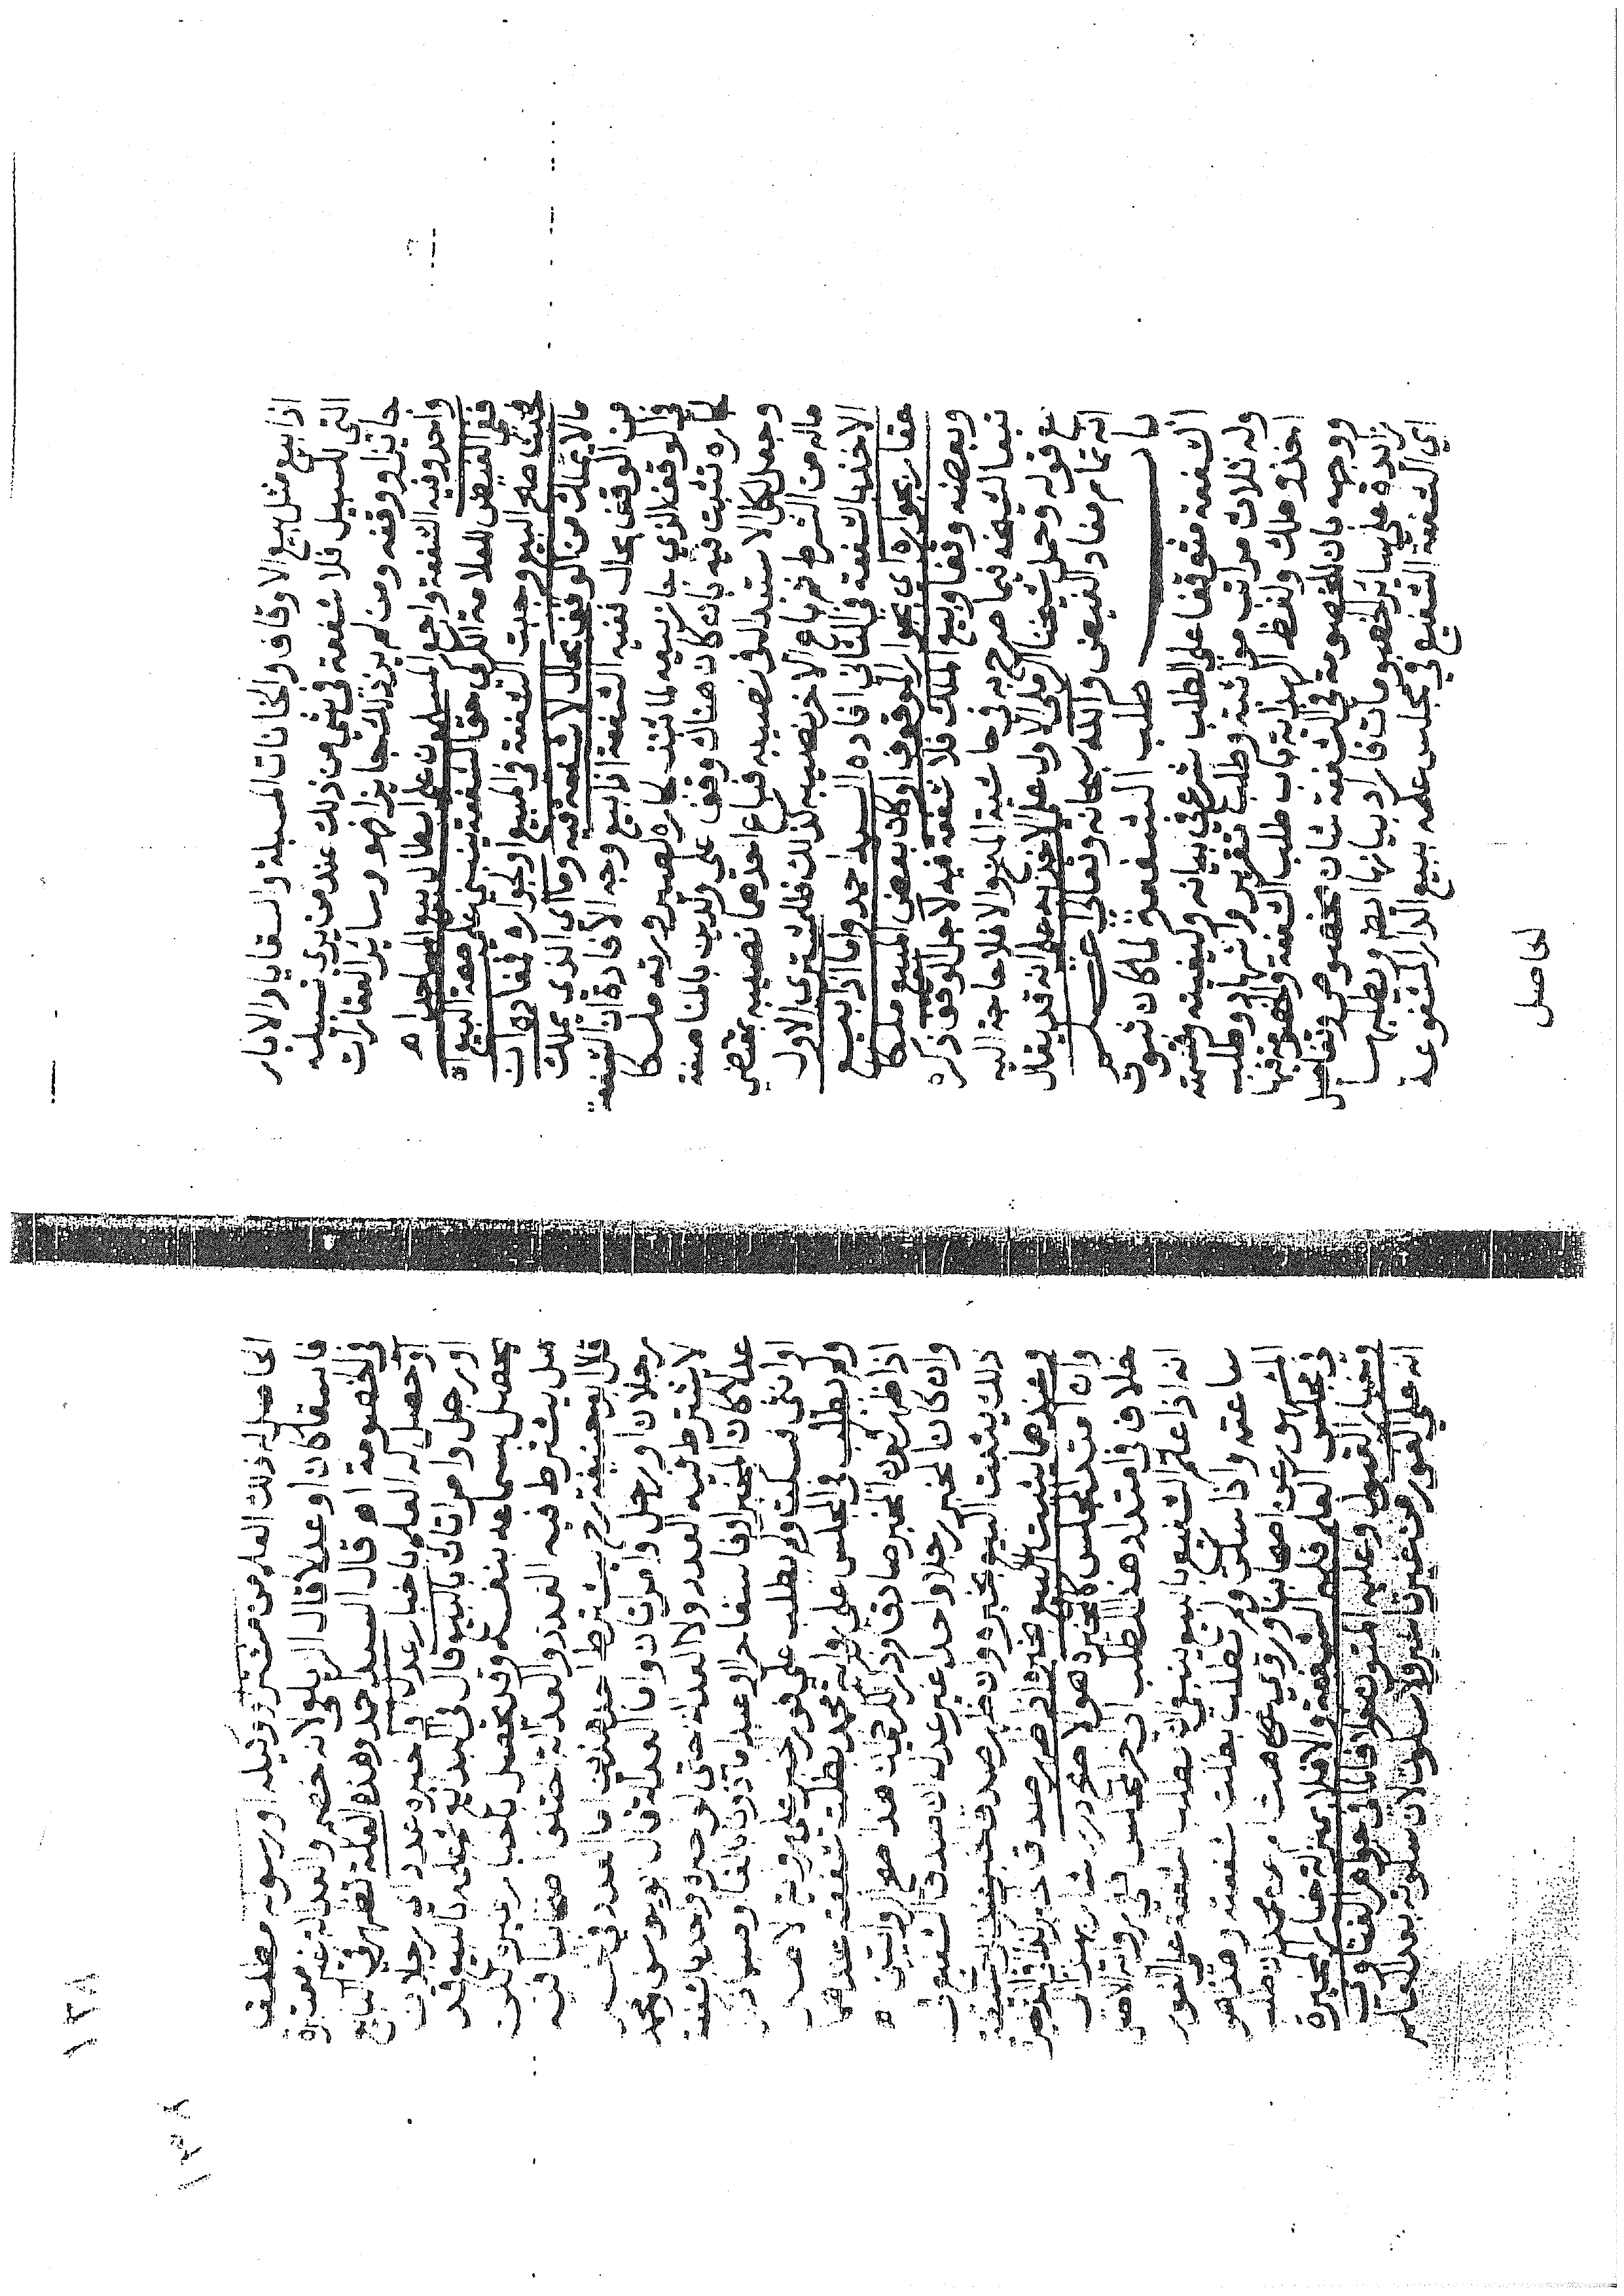 اذا بيع مثل بيع الاوقاف والخانات المسبلة والسقايا والابار
التي للسبيل فلا شفعة في شي من ذلك عند من يرى تسبيله
جائزا ووقفه ومن لم ير ذلك جايزا فهو وسائر العقارات
واحد وفيه الشفعة واجمع المسلمون على ابطال بيع المساجد اه
ففي الفيض للعلامة الكركي حق الشفعة ينبني على صحة البيع اه
فحيث صح البيع وجبت الشفعة في المبيع او بجواره فمفاده ان
مالا يملك من الوقف بحال لا شفعة فيه وما اي الذي يملك
من الوقف بحال ففيه الشفعة اذا بيع وجه الافادة ان الشفعة
في الوقف الذي جاز بيعه لما تثبت لجاره لصيرورته ملكا
لجاره تثبت فيه بان كان هناك وقف على ولدين بالمناصفة
وجعل لكل الاستبدال في نصيبه فباع احدهما نصيبه بمقتضى
ماله من الشرط ثم باع الاخر نصيبه كذلك فللمشتري الاول
الاخذ بالشفعة في الثاني افاده السيد احمد واما اذا بيع
عقار بجواره اي بجوار الموقوف او كان بعض المبيع ملكا
وبعضه وقفا وبيع الملك فلا شفعة فيه لاجل الوقف ذكره
تبعا لشيخه فيما صرح به في حاشية المنح والا فلا حاجة اليه
مع قوله وحمل شيخنا الرملي الاول على الاخذ به على انه قد يقال
انه تمام مفاد الفيض والله سبحانه وتعالى اعلم
باب طلب الشفعة لما كان ثبوت
الشفعة متوقفا على الطلب شرع في بيانه وكيفيته وقسمته
وله ثلاث مراتب مواثبة وطلب تقرير واشهاد وطلب
اخذ وملك ولفظ الهداية باب طلب الشفعة والخصومة فيها
ووجهه بان للخصومة في الشفعة شان مخصوص وتفاصيل
زائدة على سائر الخصومات فاراد بيانها اهـ ويطلبها
اي الشفعة الشفيع في مجلس علمه ببيع الدار المشفوعة
الحاصل
١٣٨
١٣٨
الحاصل له ذلك العلم من مشتر او وكيله او رسوله مطلقا
فاسقا كان او عدلا قال الزيلعي لانه خصم والعدالة غير معتبرة
في الخصومة اه قال السيد احمد وهذه العلة تظهر في البايع
او حصل له العلم باخبار عدل واحد او عدد اي رجلان
او رجل وامراتان بالبيع قال في البدايع العلم بالبيع قد
يحصل بسماعه بنفسه وقد يحصل باخبار غيره لكن
هل يشترط فيه العدد والعدالة اختلف اصحابنا فيه
قال ابو حنيفة رح يشترط احد هذين اما العدد في المخبر
رجلان او رجل وامراتان واما العدالة وقال ابو يوسف ومحمد
لا يشترط فيه العدد ولا العدالة حتى لو اخبره واحد بالشفعة
عدلا كان المخبر او فاسقا حرا او عبدا ماذونا بالغا او صبيا ذكرا
او انثى فسكت ولم يطلب على فور الخبر على رواية الاصل
ولم يطلب في المجلس على رواية محمد بطلت شفعته عندهما
اذا ظهر كون المخبر صادقا وذكر الكرخي ان هذا اصح الروايتين ه
وان كان المخبر رجلا واحدا غير عدل ان صدقه الشفيع في
ذلك يثبت البيع بخبره وان ظهر صدق
وعندهما يثبت البيع بخبره اذا ظهر صدقه
وان امتد المجلس كالمخيرة هو الاصح درر
خلافا في امتداد هذا الطلب الى اخر المجلس ففي رواية الاصل
انه اذا علم الشفيع بالبيع ينبغي ان يطلب الشفعة على الفور
ساعته واذا سكت ولم يطلب بطلت شفعته وهذا هو
المشهور عن اصحابنا وروي هشام عن محمد ان طلب
في مجلس العلم فله الشفعة والا فلا بمنزلة خيار المخيرة
وخيار القبول وعليه المتون
انه على الفور من غير تاخير ولا سكوت لان سكوته بعد العلم